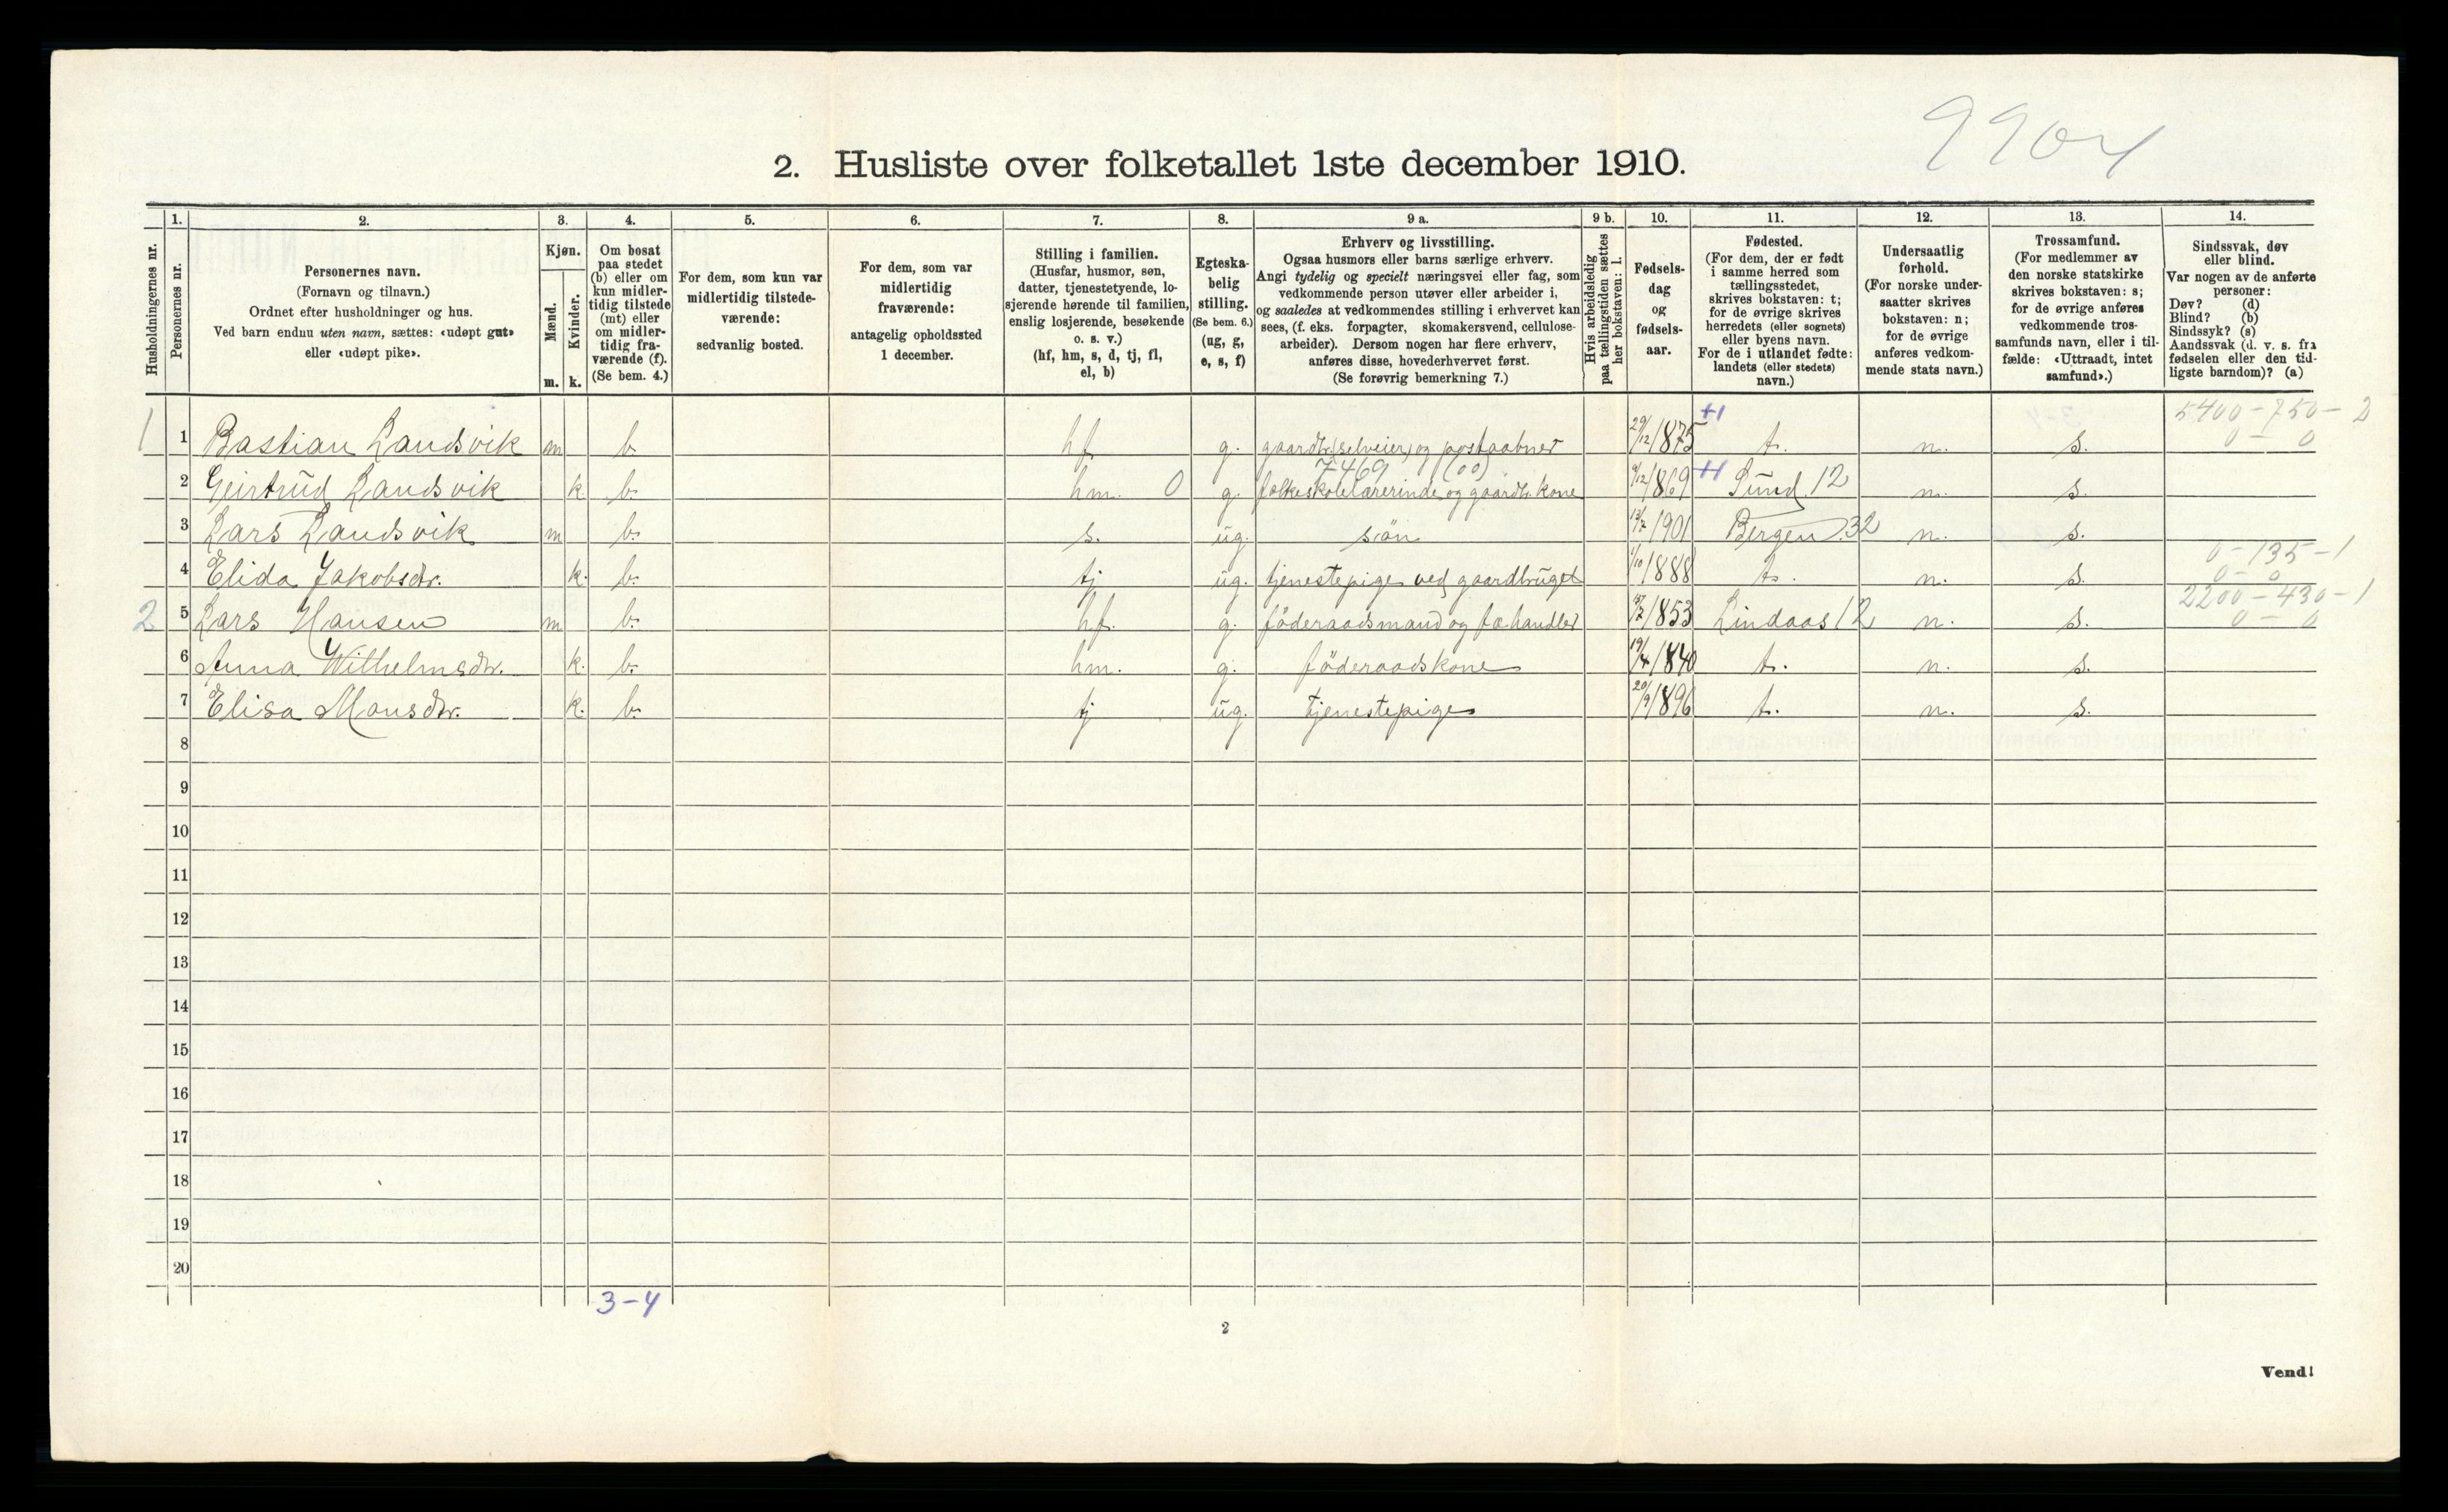 9904
2. Husliste over folketallet 1ste december 1910.
Husholdningernes nr.
1.
Personernes nr.
2.
Personernes navn.
(Fornavn og tilnavn.)
Ordnet efter husholdninger og hus.
Ved barn endnu uten navn, sættes: «udøpt gut»
eller «udøpt pike».
3.
Kjøn.
Mænd.
Kvinder.
m. k.
4.
Om bosat
paa stedet
(b) eller om
kun midler-
tidig tilstede
(mt) eller
om midler-
tidig fra-
værende (f).
(Se bem. 4.)
5.
For dem, som kun var
midlertidig tilstede-
værende:
sedvanlig bosted.
6.
For dem, som var
midlertidig
fraværende:
antagelig opholdssted
1 december.
7.
Stilling i familien.
(Husfar, husmor, søn,
datter, tjenestetyende, lo-
sjerende hørende til familien,
enslig losjerende, besøkende
o. s. v.)
(hf, hm, s, d, tj, fl,
el, b)
8.
Egteska-
belig
stilling.
(Se bem. 6.)
(ug, g,
e, s, f)
9 a.
Erhverv og livsstilling.
Ogsaa husmors eller barns særlige erhverv.
Angi tydelig og specielt næringsvei eller fag, som
vedkommende person utøver eller arbeider i,
og saaledes at vedkommendes stilling i erhvervet kan
sees, (f. eks. forpagter, skomakersvend, cellulose-
arbeider). Dersom nogen har flere erhverv,
anføres disse, hovederhvervet først.
(Se forøvrig bemerkning 7.)
9 b.
Hvis arbeidsledig
paa tællingstiden sættes
her bokstaven: l.
10.
Fødsels-
dag
og
fødsels-
aar.
11.
Fødested.
(For dem, der er født
i samme herred som
tællingsstedet,
skrives bokstaven: t;
for de øvrige skrives
herredets (eller sognets)
eller byens navn.
For de i utlandet fødte:
landets (eller stedets)
navn.)
12.
Undersaatlig
forhold.
(For norske under-
saatter skrives
bokstaven: n;
for de øvrige
anføres vedkom-
mende stats navn.)
13.
Trossamfund.
(For medlemmer av
den norske statskirke
skrives bokstaven: s;
for de øvrige anføres
vedkommende tros-
samfunds navn, eller i til-
fælde: «Uttraadt, intet
samfund».)
14.
Sindssvak, døv
eller blind.
Var nogen av de anførte
personer:
Døv? (d)
Blind? (b)
Sindssyk? (s)
Aandssvak (d. v. s. fra
fødselen eller den tid-
ligste barndom)? (a)
+1 5400-750-2
1 1 Bastian Landsvik m b. hf g. gaardbr. (selveier) og postaabner 29/12 1875 t. n. s. 0-0
7469 (00)
2 Geirtrud Landsvik k. b. hm. 0 g. folkeskolelærerinde og gaardb. kone 9/12 1869 +1 Sund 12 n. s.
3 Lars Landsvik m b. s. ug. søn 1901 Bergen 32 n. s.
0-135-1
4 Elida Jakobsdr. k. b. tj ug. tjenestepige ved gaardbruget 1/10 1888 t. n. s. 0-0
2200-430-1
2 5 Lars Hansen m b. hf. g. føderaadsmand og fæhandler 1853 Lindaas 12 n. s. 0-0
6 Anna Wilhelmsdr. k. b. hm. g. føderaadskone 19/4 1840 t. n. s.
7 Elisa Monsdr. k. b. tj ug. tjenestepige 20/9 1896 t. n. s.
8
9
10
11
12
13
14
15
16
17
18
19
20
3-4
2
Vend!